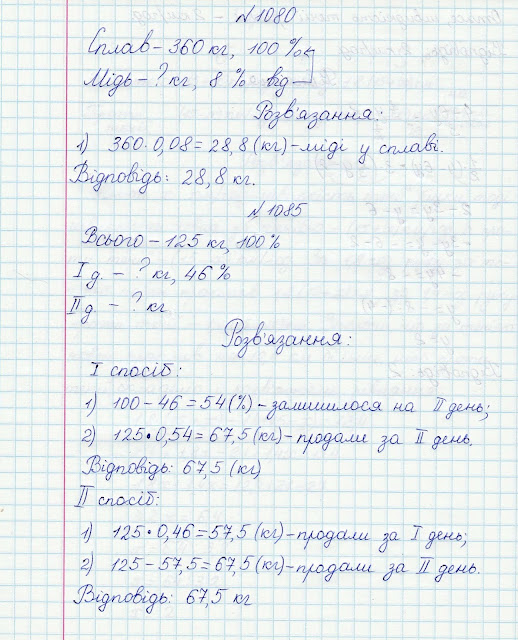 № 1080
Сплав – 360 кг, 100 %
Мідь – ? кг, 8 % від
Розв'язання:
1) 360 · 0,08 = 28,8 (кг) – міді у сплаві.
Відповідь: 28,8 кг.
№ 1085
Всього – 125 кг, 100 %
I д. – ? кг, 46 %
II д. – ? кг
Розв'язання:
I спосіб:
1) 100 – 46 = 54 (%) – залишилося на II день;
2) 125 · 0,54 = 67,5 (кг) – продали за II день.
Відповідь: 67,5 (кг)
II спосіб:
1) 125 · 0,46 = 57,5 (кг) – продали за I день;
2) 125 – 57,5 = 67,5 (кг) – продали за II день.
Відповідь: 67,5 кг